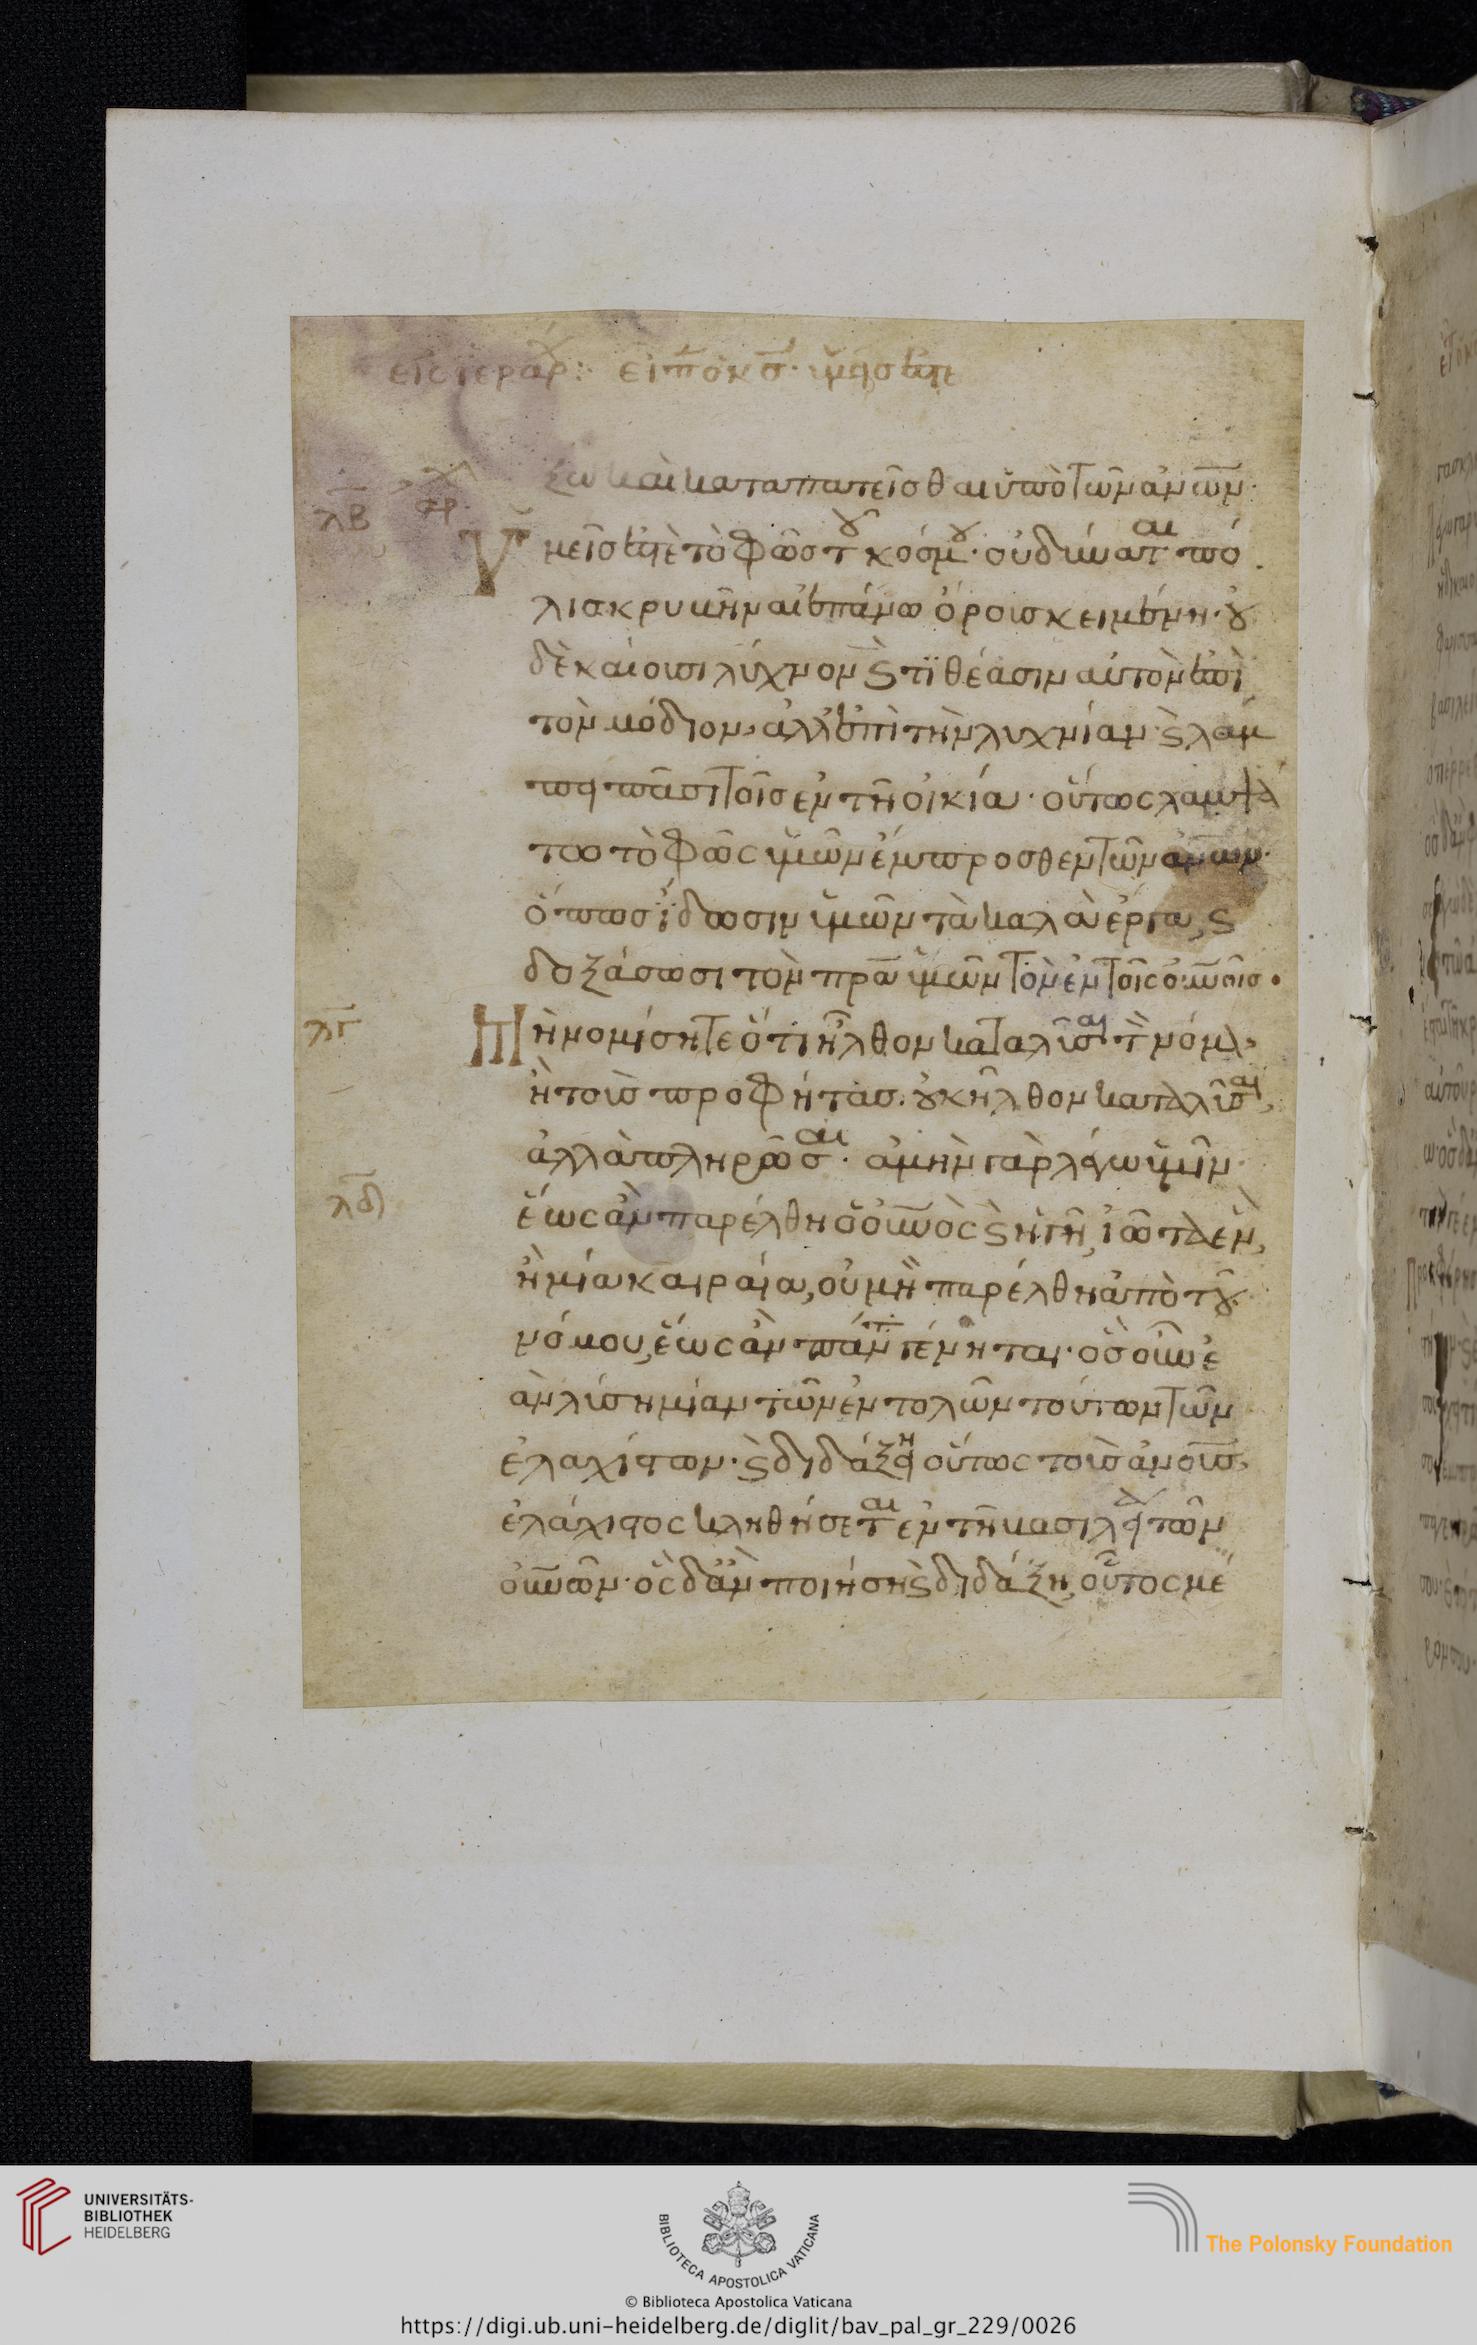 εἰς ἱεράρχ: εἶπεν ὁ κς· ὑμεῖς ἐστὲ
ξω καὶ καταπατεῖσθαι ὑπὸ τῶν ἀνων·
λβ
ἀρχ
Ὑμεῖς ἐστὲ τὸ φῶς τοῦ κόσμου· οὐ δύναται πό
λις κρυβῆναι ἐπάνω ὄρους κειμένη· οὐ
δὲ καίουσι λύχνον ϗ τϊθέασιν αὐτὸν ὑπὸ
τὸν μόδιον, ἀλλ' ἐπὶ τὴν λυχνίαν· ϗ λάμ
πει πᾶσι τοῖς ἐν τῆ οἰκία· οὕτως λαμψά
τω τὸ φῶς ὑμῶν ἔμπροσθεν τῶν ἀνων·
ὅπως ἴδωσιν ὑμῶν τὰ καλὰ ἔργα, ϗ
δοξάσωσι τὸν πρα ὑμῶν τὸν ἐν τοῖς οὐνοῖς·
λγ
Μὴ νομίσητε ὅτι ἦλθον καταλῦσαι τὸν νόμον,
ἢ τοὺς προφήτας. οὐκ ἦλθον καταλῦσαι,
ἀλλὰ πληρῶσαι· ἀμὴν γὰρ λέγω ὑμῖν·
λδ
ἕως ἂν παρέλθη ὁ οὐνὸς ϗ ἡ γῆ, ἰῶτα ἓν,
ἢ μία καιραία, οὐ μὴ παρέλθη ἀπὸ τοῦ
νόμου, ἕως ἂν πάντα γένηται· ὃς οὖν ἐ
ὰν λύση μίαν τῶν ἐντολῶν τούτων τῶν
ἐλαχίστων· ϗ διδάξει οὕτως τοὺς ἀνους,
ἐλάχιστος κληθήσεται ἐν τῆ βασιλεία τῶν
οὐνῶν· ὃς δ' ἂν ποιήση ϗ διδάξη, οὗτος μέ
UNIVERSITÄTS-
BIBLIOTHEK
HEIDELBERG
BIBLIOTECA APOSTOLICA VATICANA
The Polonsky Foundation
© Biblioteca Apostolica Vaticana
https://digi.ub.uni-heidelberg.de/diglit/bav_pal_gr_229/0026